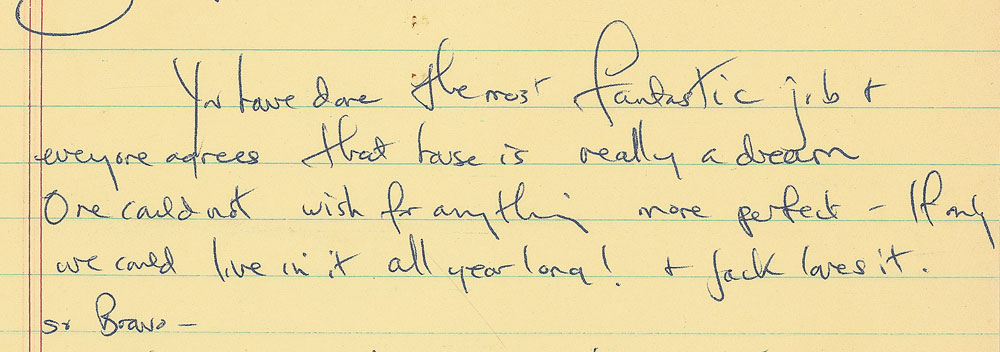 You have done the most fantastic job +
everyone agrees that house is really a dream
One could not wish for anything more perfect - If only
we could live in it all year long! + Jack loves it.
so Bravo -